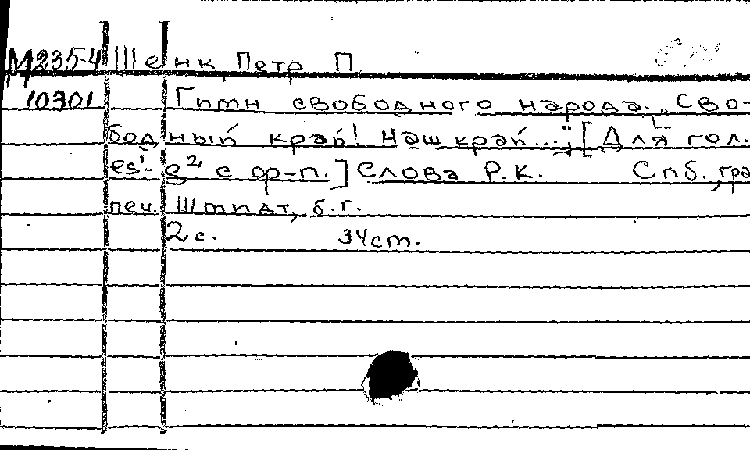 М235-4 Шенк Петр П.
10301 Гимн свободного народа. „Сво-
бодный край! Наш край...“; [Для гол.
es¹-g² с ф-п.] Слова Р.К. Спб., гра
печ. Штпдт, б.г.
2 с. 34 ст.